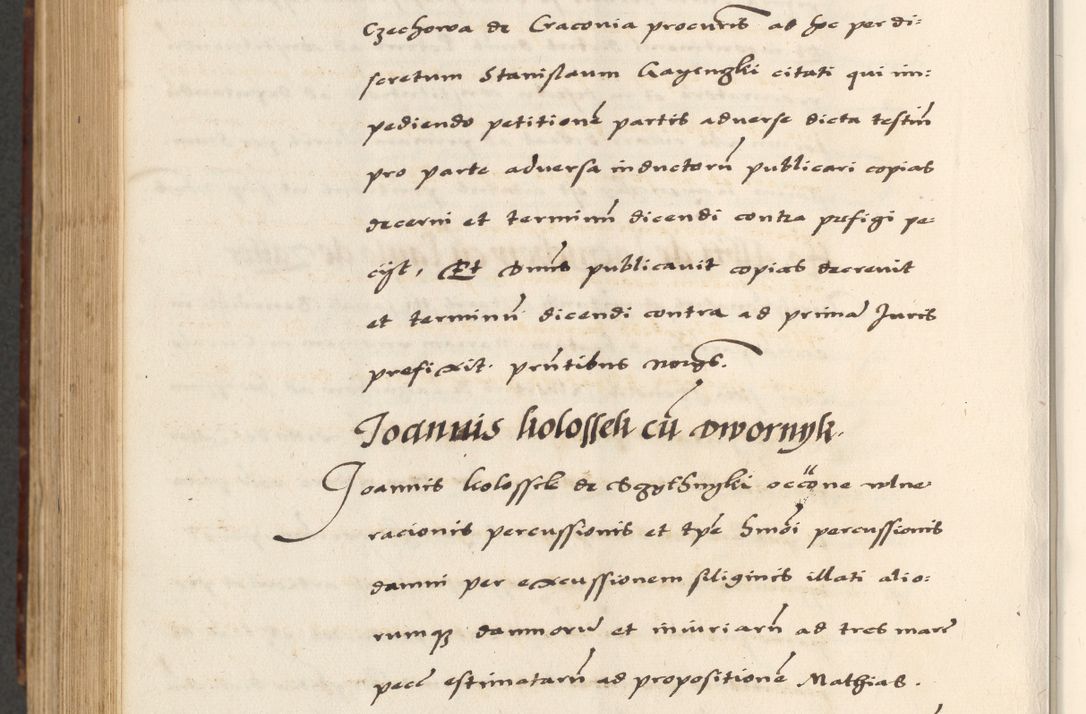 Czechowa de Cracovia procuris ad hoc per di:
scretum Stanislaum Gayengki citati qui im:
pediendo petitionē partis adverse dicta testiū
pro parte adversa inductorū publicari copias
decerni et terminū dicendi contra prefigi pe:
cijt, Et Dnūs publicavit copias decrevit
et terminū dicendi contra ad primā Juris
prefixit. prñtibus
Joannis kolossek cū Dwornyk.
Joannis kolossek de occōne vlne
racionis percussionis et tpe hmōi percussionis
damni per excussionem siliginis illati alio:
rumq dannorū et iniuriarū ad tres marc
pecē estimatarū ad propositionē Mathias.